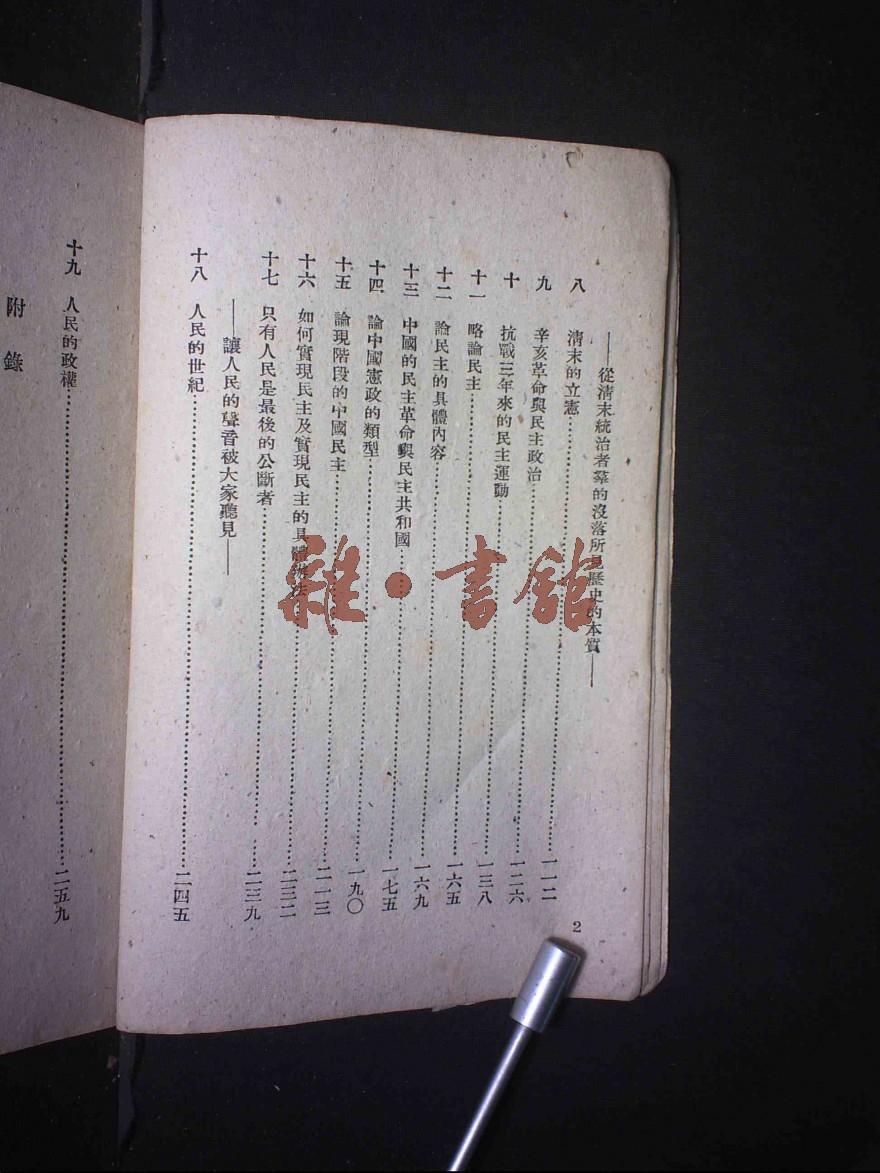 ——從清末統治者羣的沒落所見歷史的本質——
八 清末的立憲……一一二
九 辛亥革命與民主政治……一二六
十 抗戰三年來的民主運動……一三八
十一 略論民主……一六五
十二 論民主的具體內容……一六九
十三 中國的民主革命與民主共和國……一七五
十四 論中國憲政的類型……一九〇
十五 論現階段的中國民主……二一三
十六 如何實現民主及實現民主的具體辦法……二三二
十七 只有人民是最後的公斷者……二三九
——讓人民的聲音被大家聽見——
十八 人民的世紀……二四五
2
十九 人民的政權……二五九
附錄
雜·書館